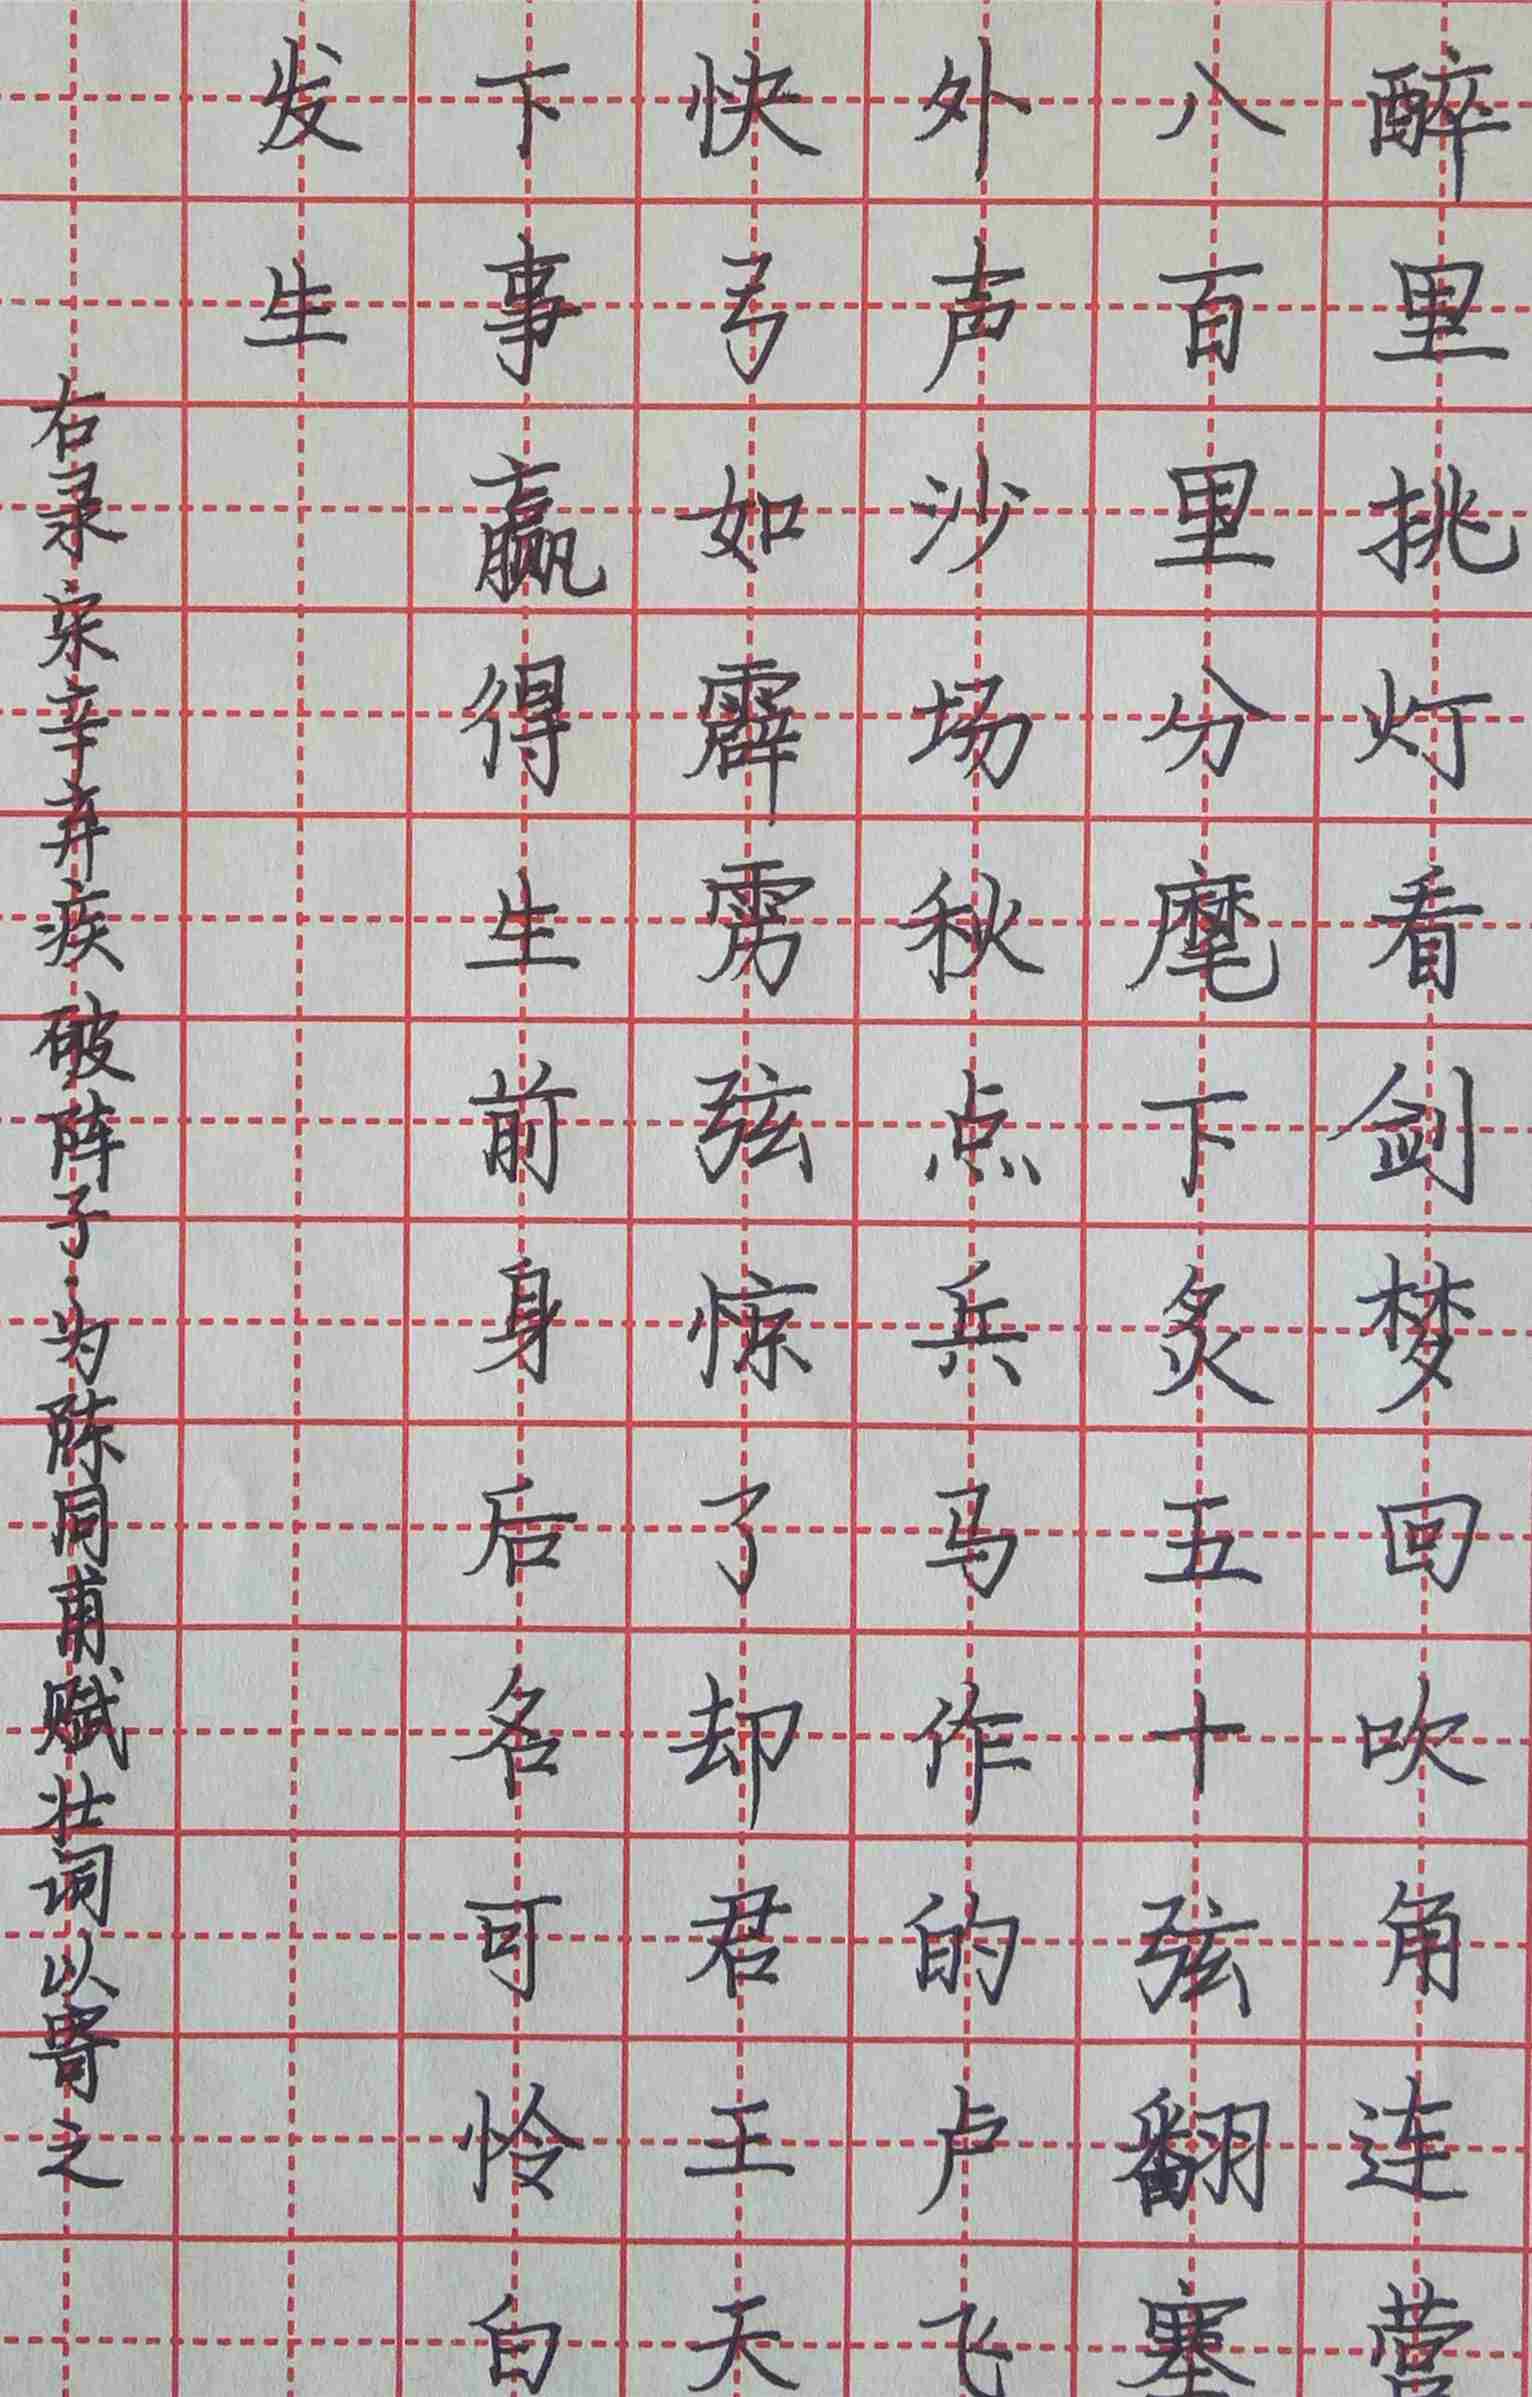 醉里挑灯看剑梦回吹角连营
八百里分麾下炙五十弦翻塞
外声沙场秋点兵马作的卢飞
快弓如霹雳弦惊了却君王天
下事赢得生前身后名可怜白
发生
右录宋辛弃疾破阵子·为陈同甫赋壮词以寄之